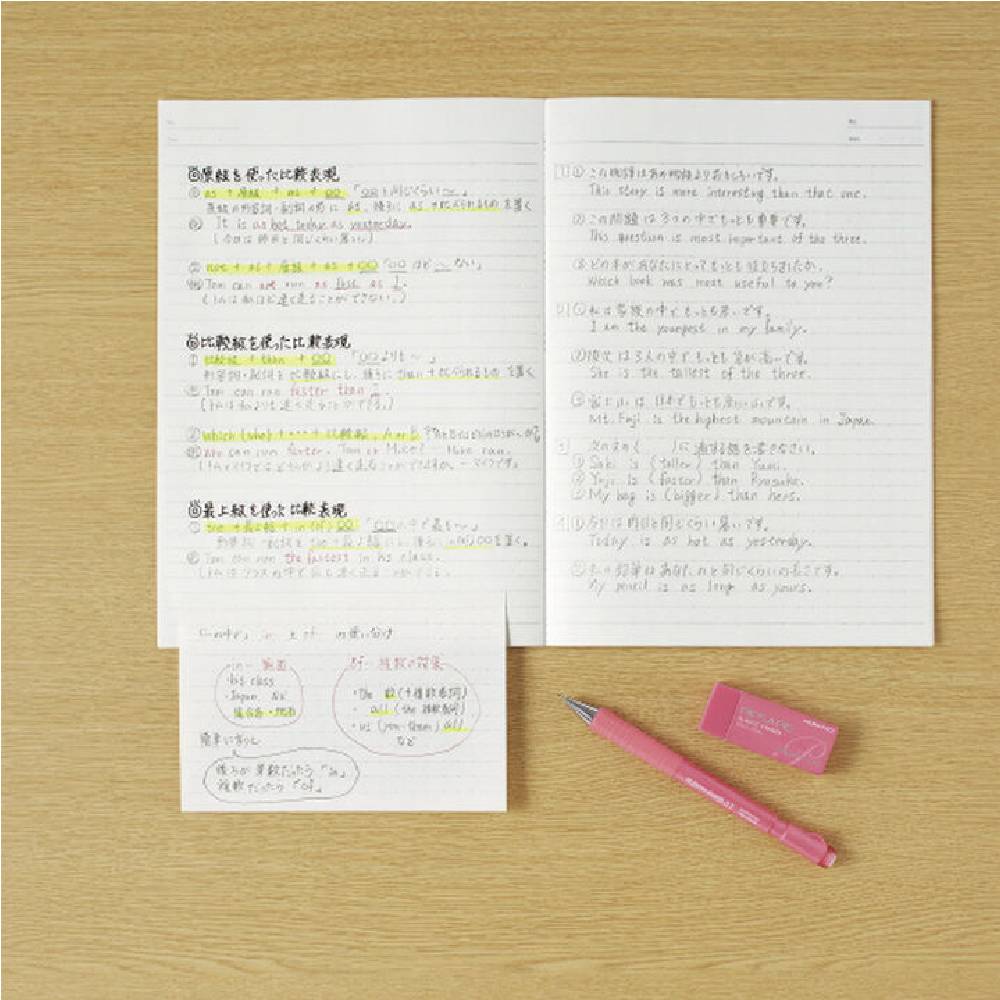 ◎原級を使った比較表現
① as + 原級 + as + ○○ 「○○と同じくらい〜」
原級の形容詞・副詞の前に as、後ろに as +比べられるもの を置く
例 It is as hot today as yesterday.
(今日は昨日と同じくらい暑い。)
② not + as + 原級 + as + ○○ 「○○ほど〜ない」
例 Tom can not run as fast as I.
(トムは私ほど速く走ることができない。)
◎比較級を使った比較表現
① 比較級 + than + ○○ 「○○よりも〜」
形容詞・副詞を比較級にし、後ろに than +比べられるもの を置く
例 Tom can run faster than I.
(トムは私よりも速く走ることができる。)
② which (who) + … + 比較級, A or B ?
faster, Tom or Mike? Mike can.
◎最上級を使った比較表現
① the +最上級+ in (of) ○○ 「○○の中で最も〜」
形容詞・副詞を the +最上級にし、後ろに in(of)○○を置く。
例 Tom can run the fastest in his class.
(トムはクラスの中で最も速く走ることができる。)
1 ① この物語はあの物語よりおもしろいです。
This story is more interesting than that one.
② この問題は3つの中でもっとも重要です。
This question is most important of the three.
③ どの本があなたにとってもっとも役立ちましたか。
Which book was most useful to you?
2 ① 私は家族の中でもっとも若いです。
I am the youngest in my family.
② 彼女は3人の中でもっとも背が高いです。
She is the tallest of the three.
③ 富士山は日本でもっとも高い山です。
Mt. Fuji is the highest mountain in Japan.
3 次の文の( )に適する語を書きなさい。
① Saki is (taller) than Yumi.
② Yuji is (faster) than Ryosuke.
③ My bag is (bigger) than hers.
4 ① 今日は昨日と同じくらい暑いです。
Today is as hot as yesterday.
② 私の鉛筆はあなたのと同じくらいの長さです。
My pencil is as long as yours.
「〜の中で」 in と of の使い分け
in… 範囲
・his class
・Japan
of… 複数の名詞
・the 数(+複数名詞)
・all (the 複数名詞)
・us (you・them) all
など
簡単に言うと
後ろが単数だったら「in」
複数だったら「of」
KOKUYO